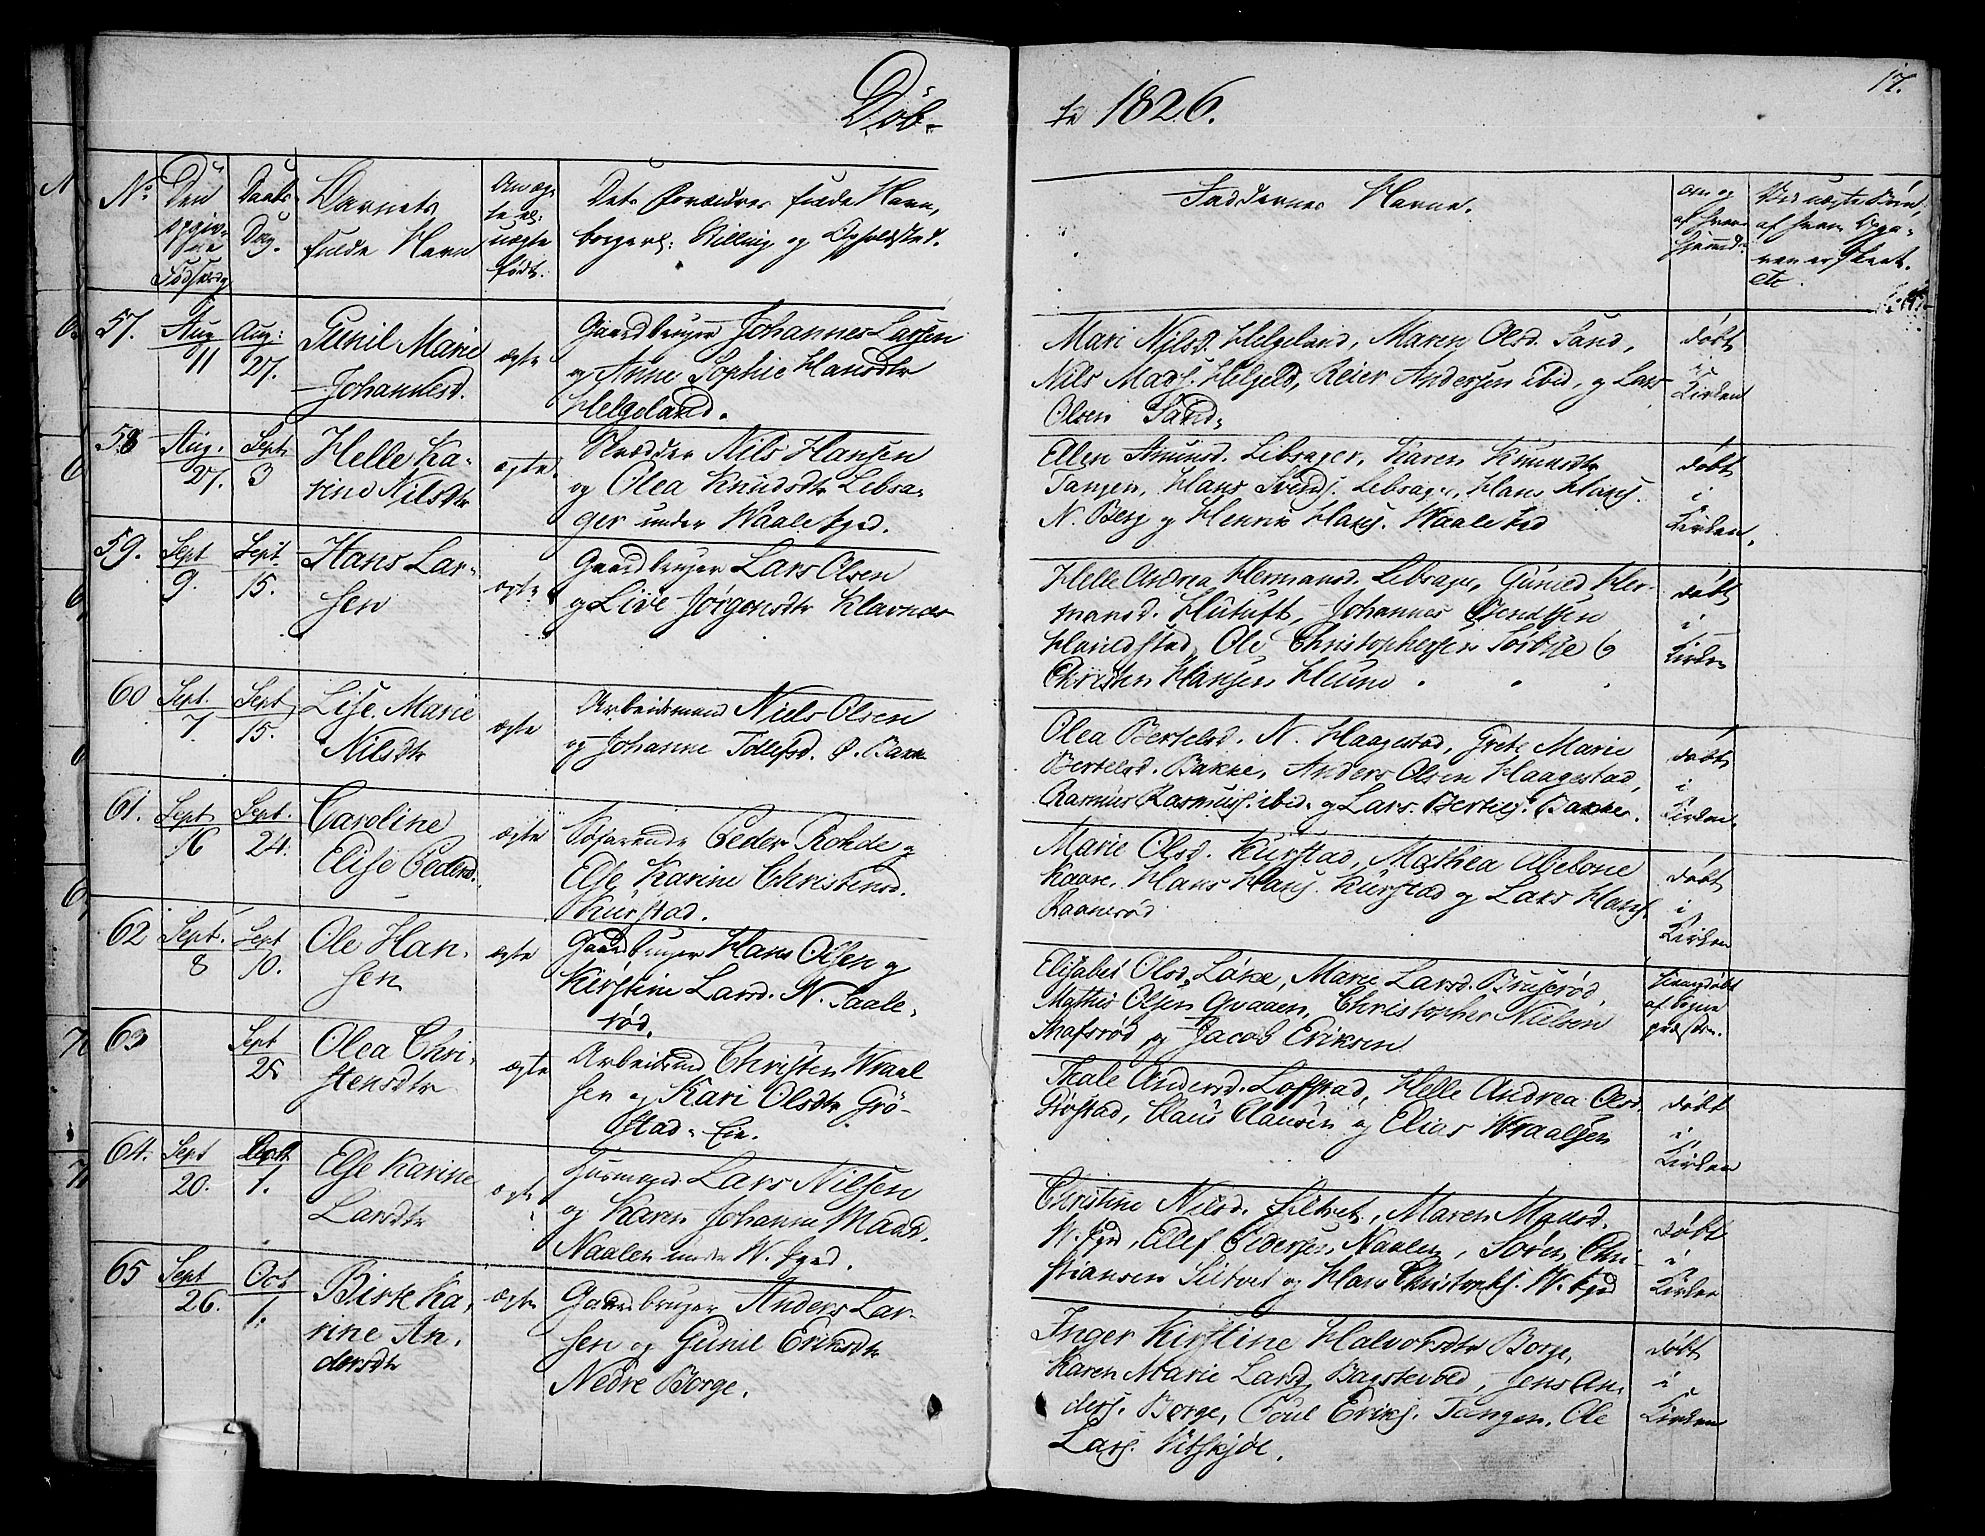 Døb-
te 1826.
17.
No.
Den opgivne Fødselsdag
Daabs Dag.
Barnets fulde Navn
Om ægte el: uægte født.
Dets Forældres fulde Navn,
borgerl: Stilling og Opholdsted.
Faddernes Navne.
57. Aug 11 Aug: 27. Gunil Marie Johannesd. ægte
Gaardbruger Johannes Larsen
og Anne Sophie Hansdtr
Helgeland.
Mari Nilsd. Helgeland, Maren Olsd. Sand,
Nils Mads. Helgeld, Reier Andersen ibid, og Lars
Olsen Sand.
døbt i Kirken
58 Aug. 27. Sept. 3 Helle Karine Nilsdtr ægte
Skrædder Nils Hansen
og Olea Knudsdtr Lebsa-
ger under Waale
Ellen Amunds. Lebsager, Karen Knudsdtr
Tangen, Hans Svends. Lebsager, Hans Hans.
N. Berg og Henrik Hans. Waale
døbt i Kirken.
59. Sept 9. Sept. 15. Hans Larsen ægte
Gaardbruger Lars Olsen
og Live Jørgensdtr Klavnæs
Helle Andrea Hermansd. Lebsager, Gunild Her-
mansd. Hutuft, Johannes Bendtsen
Ole Christophersen Sørbye og
Christen Hansen
døbt i Kirken
60 Sept. 7. Sept 15. Lise Marie Nilsdtr ægte
Arbeidsmand Niels Olsen
og Johanne Tollefsd. Ø. Bakke
Olea Bertelsd. N. Haagestad, Grete Marie
Bertelsd. Bakke, Anders Olsen Haagestad,
Rasmus Rasmus. ibid. og Lars Bertels. Bakke.
døbt i Kirken.
61. Sept 16 Sept. 24. Caroline Elise Pedersd. ægte
Søfarende Peder Rohde og
Else Karine Christensd.
Kurstad.
Marie Olsd. Kurstad, Mathea Abelone
Kaare, Hans Hans. Kurstad og Lars Hans.
Raanerød
døbt i Kirken
62 Sept. 8 Sept 10. Ole Hansen ægte
Gaardbruger Hans Olsen og
Kirstine Larsd. N. Saale-
rød.
Elisabet Olsd. Løke, Marie Larsd. Bruserød,
Mathis Olsen Qvaaen, Christopher Nielsen
og Jacob Eriksen
hjemmedøbt af Sognepræsten.
63 Sept 25 Olea Christensdtr ægte
Arbeidsmd Christen Wraal
sen og Kari Olsdtr Grø-
stad Eie.
Thale Andersd. Lofstad, Helle Andrea Olsd.
Grøstad, Claus Clausen og Elias Wraalsen
døbt i Kirken
64. Sept 20. 1. Else Karine Larsdtr ægte
Huusmand Lars Nilsen
og Karen Johanne Madsd.
Naalen under W.
Christine Nilsd. Siltvet, Maren Madsd.
Ellef Pedersen Naalen, Søren Chri-
stiansen Siltvet og Hans Christophs. W.
døbt i Kirken
65 Sept 26. Oct 1. Birte Karine Andersdtr ægte
Gaardbruger Anders Lar-
sen og Gunil Eriksdtr
Nedre Borge.
Inger Kirstine Halvorsdtr Borge,
Karen Marie Larsd Bagstevold, Jens An-
ders. Borge, Poul Eriks. Tangen, Ole
Lars. Vitskjøl.
døbt i Kirken